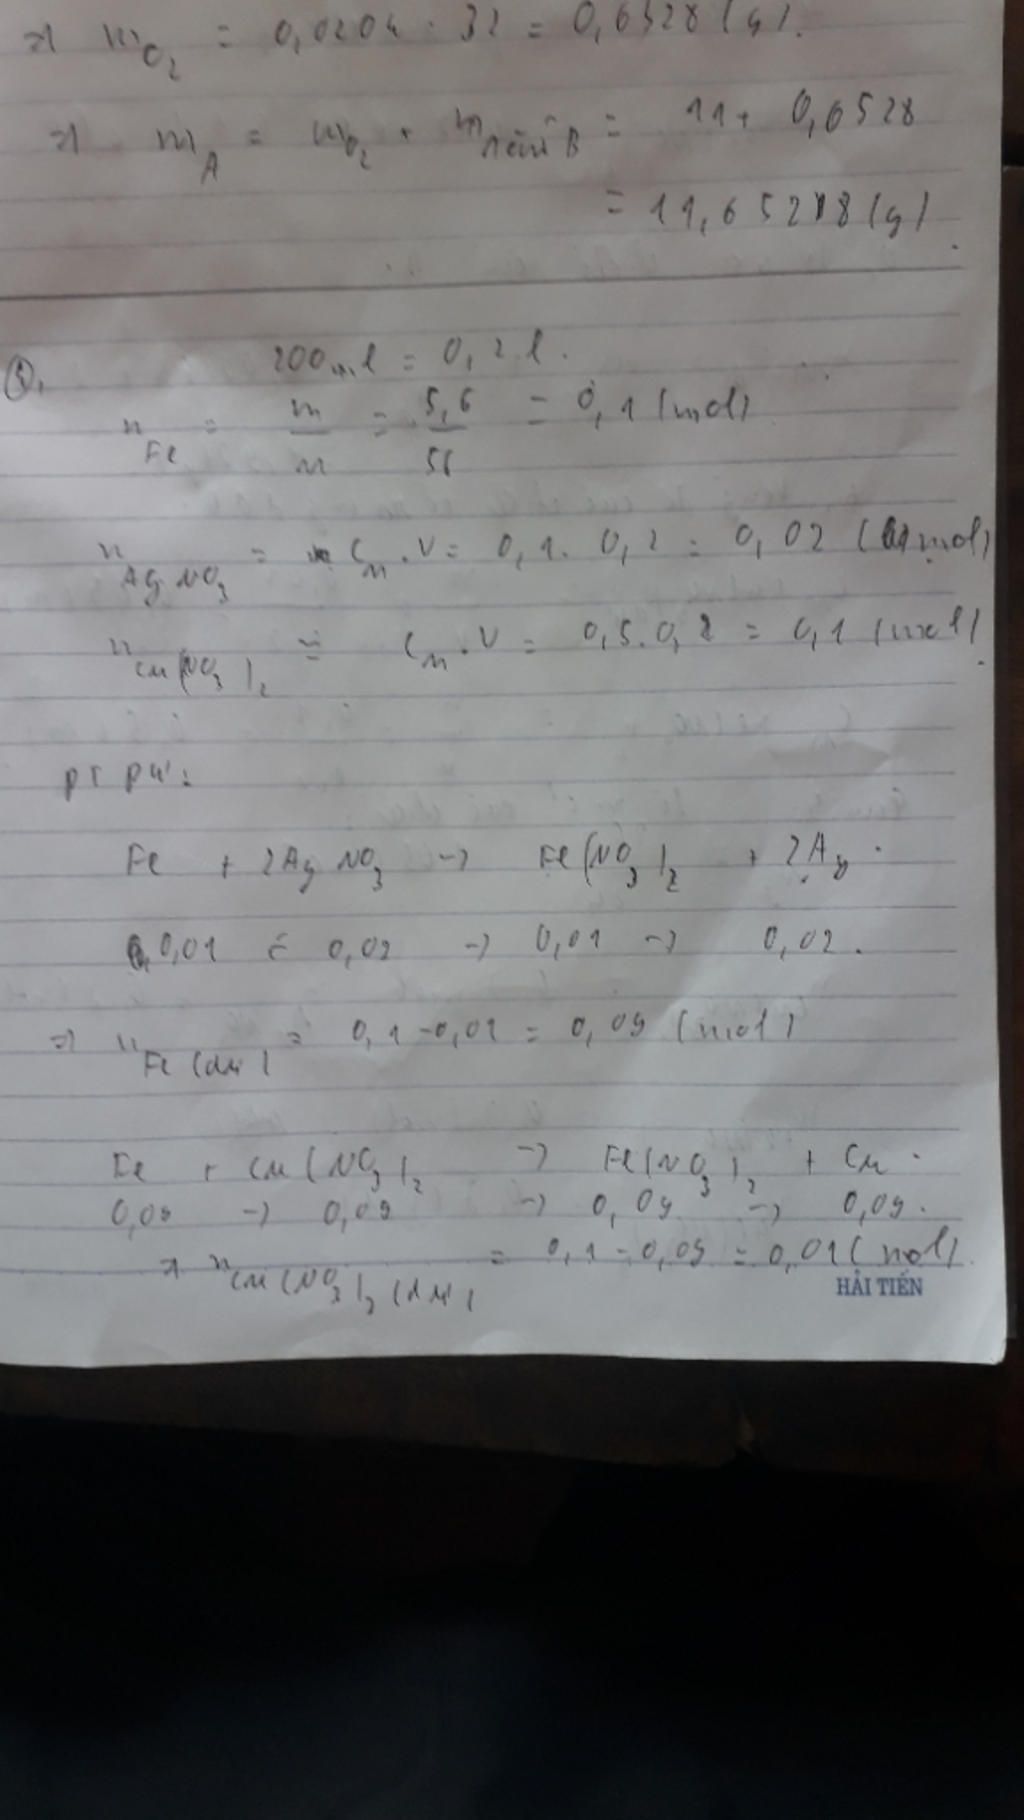 => m O2 = 0,0204 . 32 = 0,6528 (g).
=> m A = m O2 + m B = 11 + 0,6528
= 11,65218 (g).
5, 200ml = 0,2 l.
n Fe = m/M = 5,6/56 = 0,1 (mol)
n AgNO3 = CM . V = 0,1 . 0,2 = 0,02 (mol)
n Cu(NO3)2 = CM . V = 0,5 . 0,2 = 0,1 (mol).
PT pư:
Fe + 2AgNO3 -> Fe(NO3)2 + 2Ag.
0,01 <- 0,02 -> 0,01 -> 0,02.
=> n Fe (dư) = 0,1 - 0,01 = 0,09 (mol)
Fe + Cu(NO3)2 -> Fe(NO3)2 + Cu.
0,09 -> 0,09 -> 0,09 -> 0,09.
=> n Cu(NO3)2 (dư) = 0,1 - 0,09 = 0,01 (mol).
HẢI TIẾN